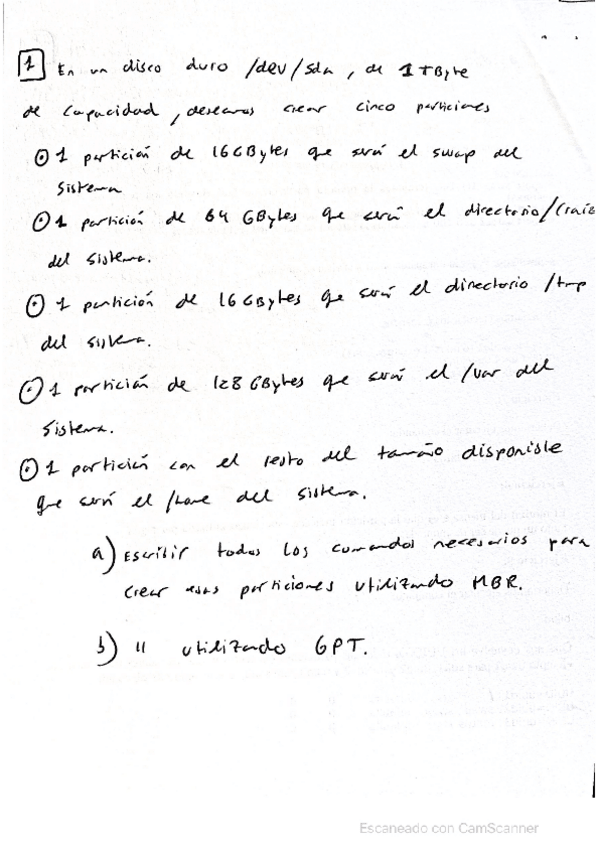 1 En un disco duro /dev/sda, de 1TByte
de capacidad, deseamos crear cinco particiones
1 partición de 16GBytes que será el swap del
sistema
1 partición de 64 GBytes que será el directorio/(raíz
del sistema.
1 partición de 16GBytes que será el directorio /tmp
del sistema.
1 partición de 128 GBytes que será el /var del
sistema.
1 partición con el resto del tamaño disponible
que será el /home del sistema.
a) Escribir todos los comandos necesarios para
crear esas particiones utilizando MBR.
b) " utilizando GPT.
Escaneado con CamScanner